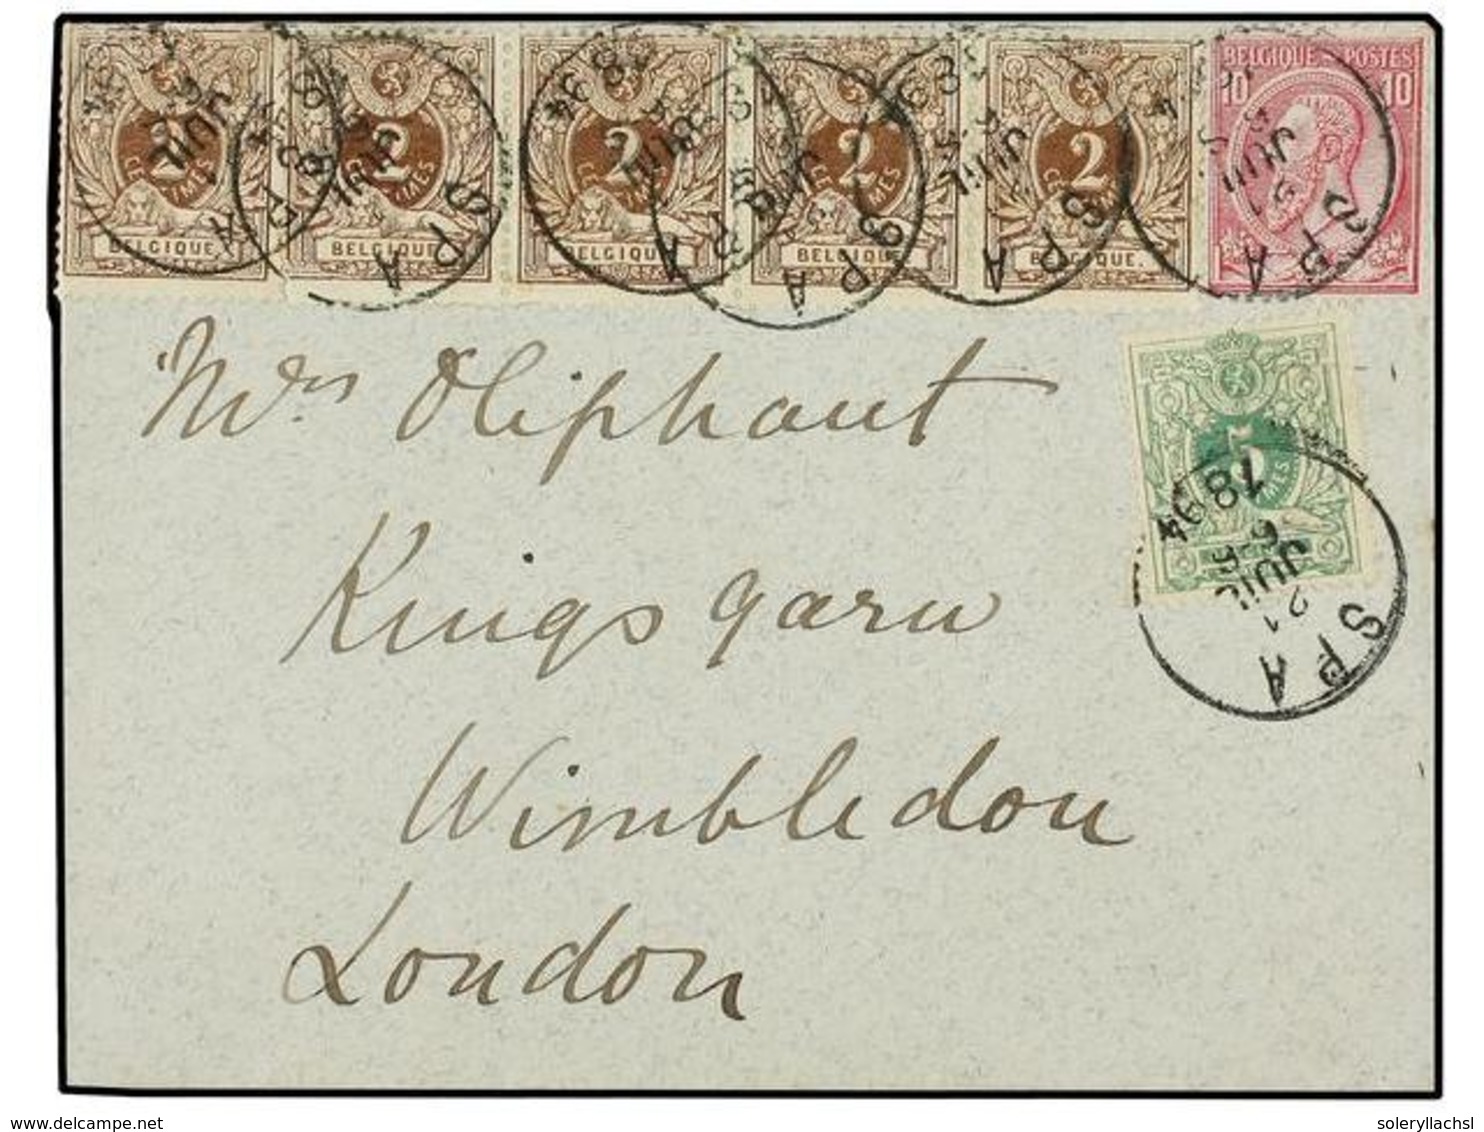 BELGIQUE POSTES
10 10
2 2 2 2 2
BELGIQUE BELGIQUE BELGIQUE BELGIQUE. BELGIQUE.
SPA SPA SPA SPA SPA SPA
Mrs Oliphant
5
SPA
21
JUIL
6-6
1894
Kings garn
Wimbledon
London
delcampe.net
soleryllachsl